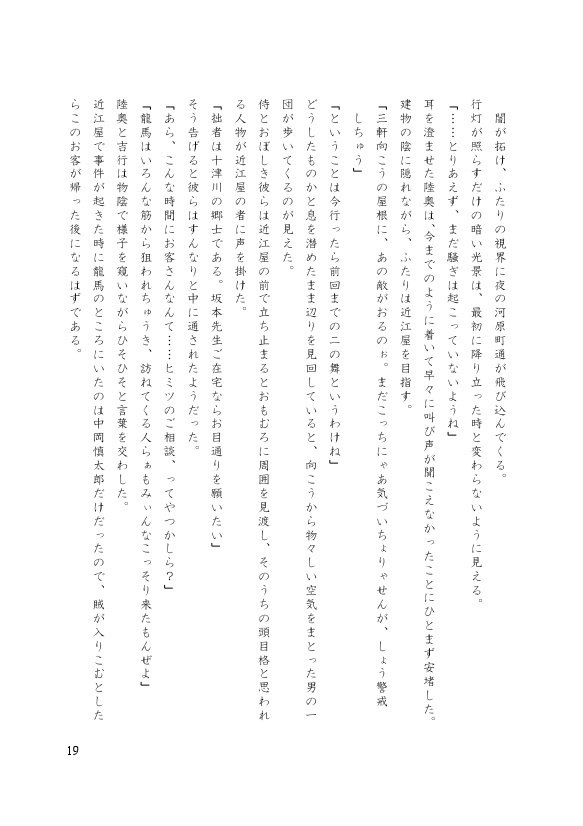 闇が拓け、ふたりの視界に夜の河原町通が飛び込んでくる。
行灯が照らすだけの暗い光景は、最初に降り立った時と変わらないように見える。
「……とりあえず、まだ騒ぎは起こっていないようね」
耳を澄ませた陸奥は、今までのように着いて早々に叫び声が聞こえなかったことにひとまず安堵した。
建物の陰に隠れながら、ふたりは近江屋を目指す。
「三軒向こうの屋根に、あの敵がおるのぉ。まだこっちにゃあ気づいちょりゃせんが、しょう警戒
しちゅう」
「ということは今行ったら前回までの二の舞というわけね」
どうしたものかと息を潜めたまま辺りを見回していると、向こうから物々しい空気をまとった男の一
団が歩いてくるのが見えた。
侍とおぼしき彼らは近江屋の前で立ち止まるとおもむろに周囲を見渡し、そのうちの頭目格と思われ
る人物が近江屋の者に声を掛けた。
「拙者は十津川の郷士である。坂本先生ご在宅ならお目通りを願いたい」
そう告げると彼らはすんなりと中に通されたようだった。
「あら、こんな時間にお客さんなんて……ヒミツのご相談、ってやつかしら？」
「龍馬はいろんな筋から狙われちゅうき、訪ねてくる人らぁもみぃんなこっそり来たもんぜよ」
陸奥と吉行は物陰で様子を窺いながらひそひそと言葉を交わした。
近江屋で事件が起きた時に龍馬のところにいたのは中岡慎太郎だけだったので、賊が入りこむとした
らこのお客が帰った後になるはずである。
19